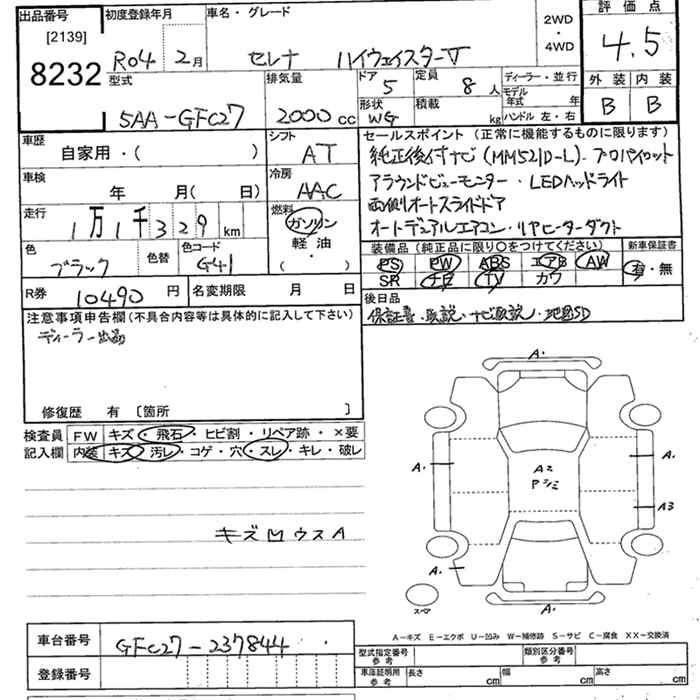 出品番号 初度登録年月 車名・グレード 2WD・4WD 評価点
[2139]
8232 R04 2月 セレナ ハイウェイスターV 4.5
型式 排気量 ドア 5 定員 8人 ディーラー・並行 外装 内装
5AA-GFC27 2000cc 形状 WG 積載 kg モデル年式 年 B B
ハンドル 左・右
車歴 自家用・( ) シフト AT セールスポイント(正常に機能するものに限ります)
純正後付ナビ(MM521D-L)・プロパイロット
車検 年 月( 日) 冷房 AAC アラウンドビューモニター・LEDヘッドライト
両側オートスライドドア
走行 1万1千329km 燃料 ガソリン 軽油・( ・ ) オートデュアルエアコン・リヤヒーターダクト
色 ブラック 色替 色コード G41 装備品(純正品に限り○をつけてください) 新車保証書
PS PW ABS エアB AW 有・無
SR ナビ TV カワ
R券 10490円 名変期限 月 日 後日品
保証書・取説・ナビ取説・地図SD
注意事項申告欄(不具合内容等は具体的に記入して下さい)
ディーラー出品
修復歴 有 〔箇所 〕
検査員 FW キズ・飛石・ヒビ割・リペア跡・×要
記入欄 内装 キズ・汚レ・コゲ・穴・スレ・キレ・破レ
キズ凹ウスA
A・
A・ A・
A2
Pシミ
A3
A・
スペア
A・
A-キズ E-エクボ U-凹み W-補修跡 S-サビ C-腐食 XX-交換済
車台番号 GFC27-237844
登録番号
型式指定番号 参考 類別区分番号 参考
車庫証明用 参考 長さ cm 幅 cm 高さ cm